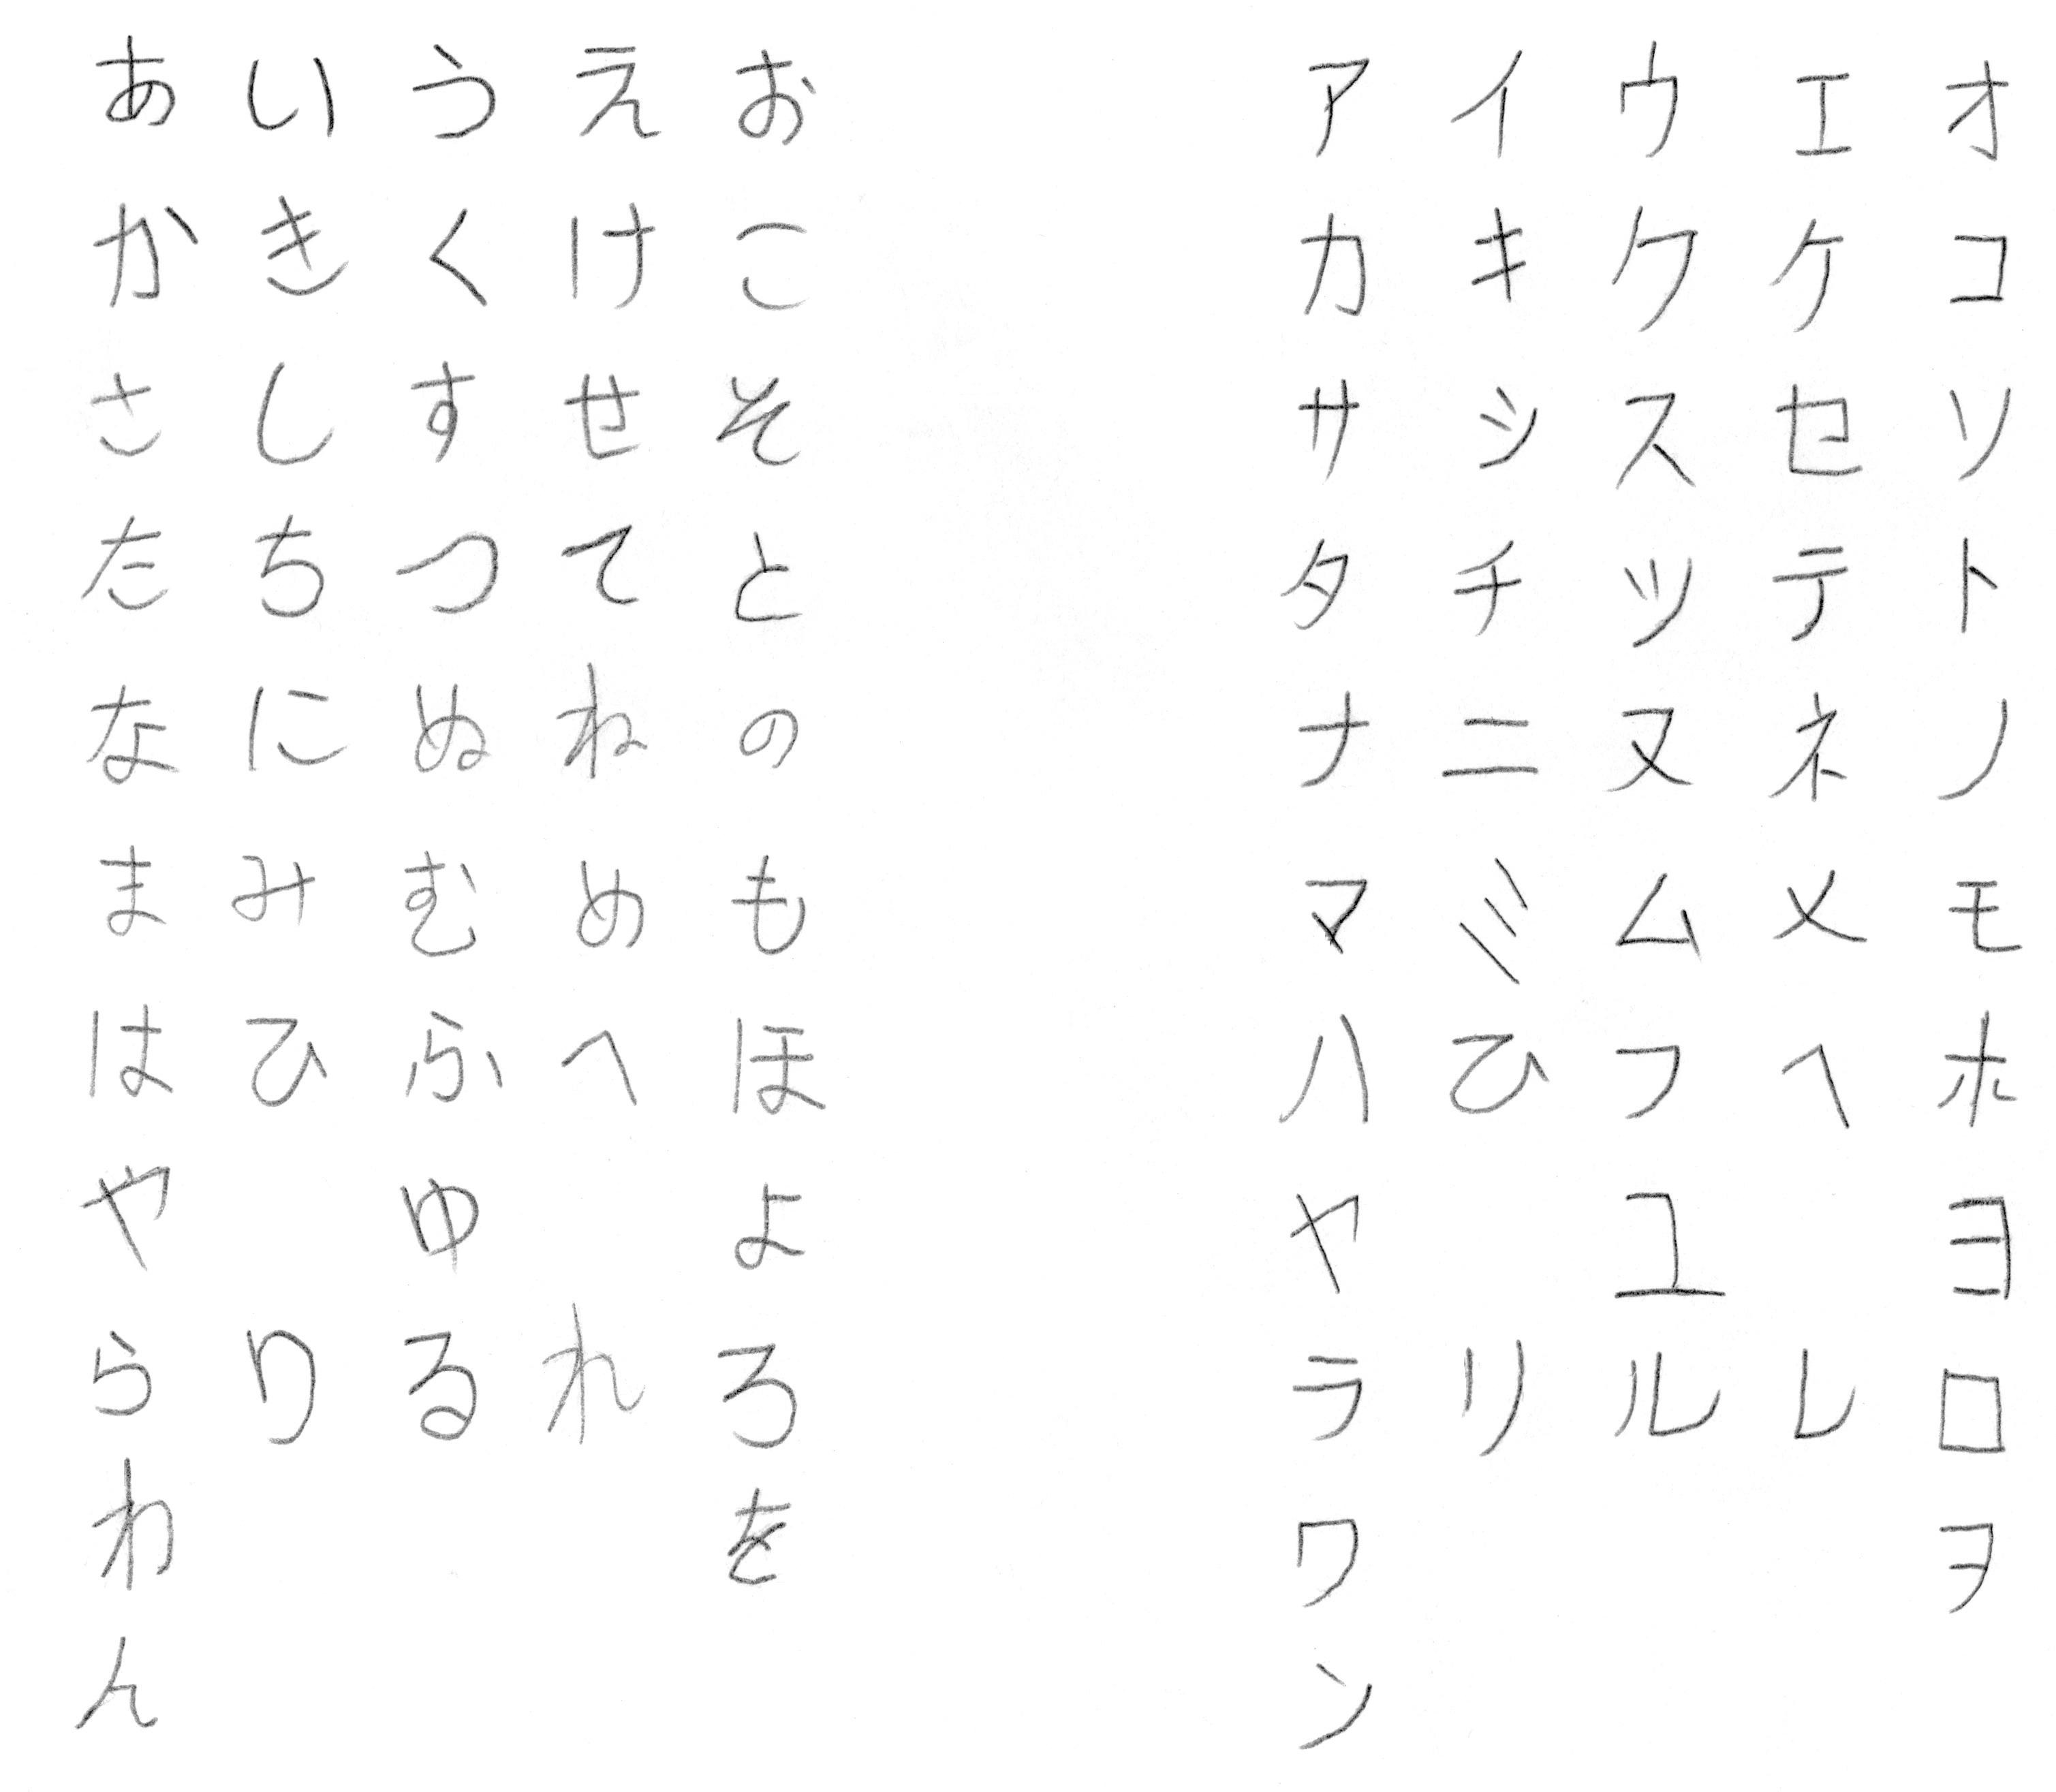 あ い う え お ア イ ウ エ オ
か き く け こ カ キ ク ケ コ
さ し す せ そ サ シ ス セ ソ
た ち つ て と タ チ ツ テ ト
な に ぬ ね の ナ ニ ヌ ネ ノ
ま み む め も マ ミ ム メ モ
は ひ ふ へ ほ ハ ひ フ ヘ ホ
や ゆ よ ヤ ユ ヨ
ら り る れ ろ ラ リ ル レ ロ
わ を ワ ヲ
ん ン